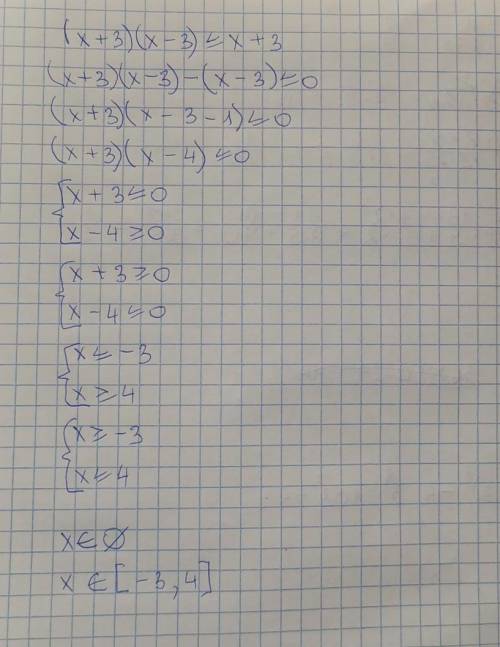 (x+3)(x-3)≤x+3
(x+3)(x-3)-(x-3)≤0
(x+3)(x-3-1)≤0
(x+3)(x-4)≤0
{x+3≤0
x-4≥0
{x+3≥0
x-4≤0
{x≤-3
x≥4
{x≥-3
x≤4
x∈∅
x∈[-3,4]